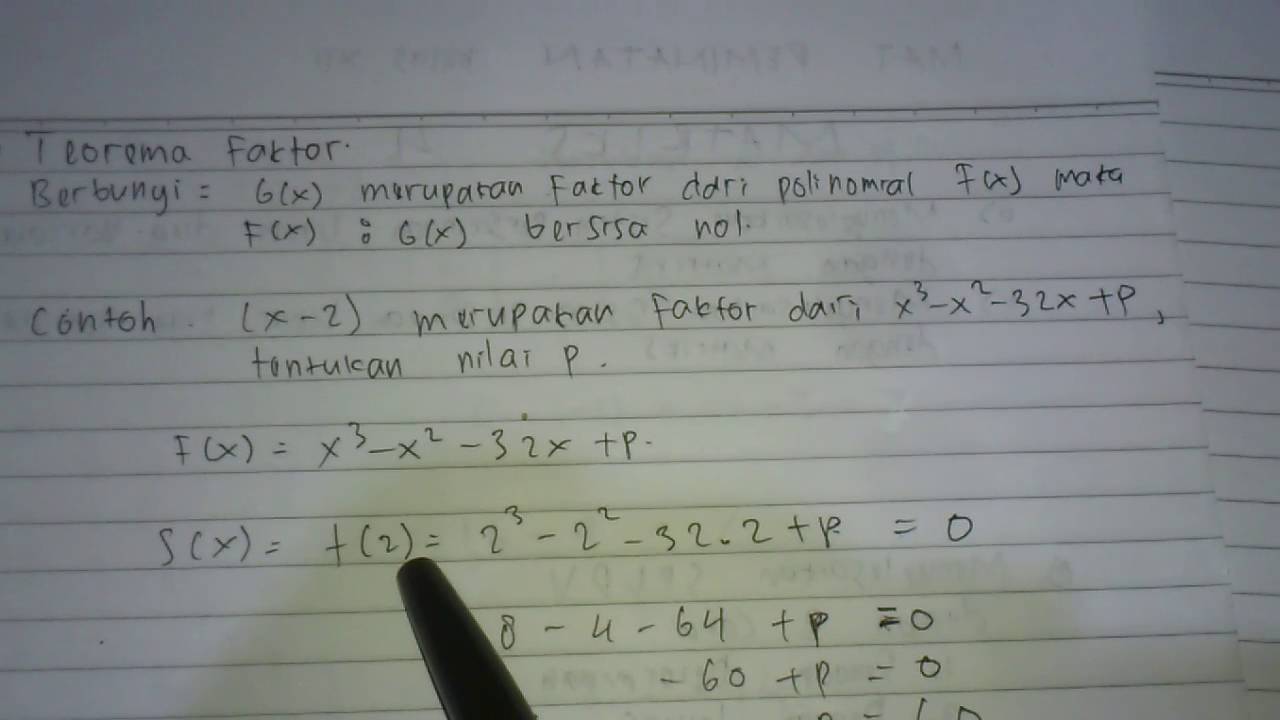 Teorema Faktor.
Berbunyi = G(x) merupakan Faktor dari polinomial F(x) maka
F(x) : G(x) bersisa nol.
Contoh. (x-2) merupakan faktor dari x³-x²-32x+p,
tentukan nilai p.
F(x) = x³-x²-32x+p.
S(x) = f(2) = 2³-2²-32.2+p = 0
8-4-64+p = 0
-60+p = 0